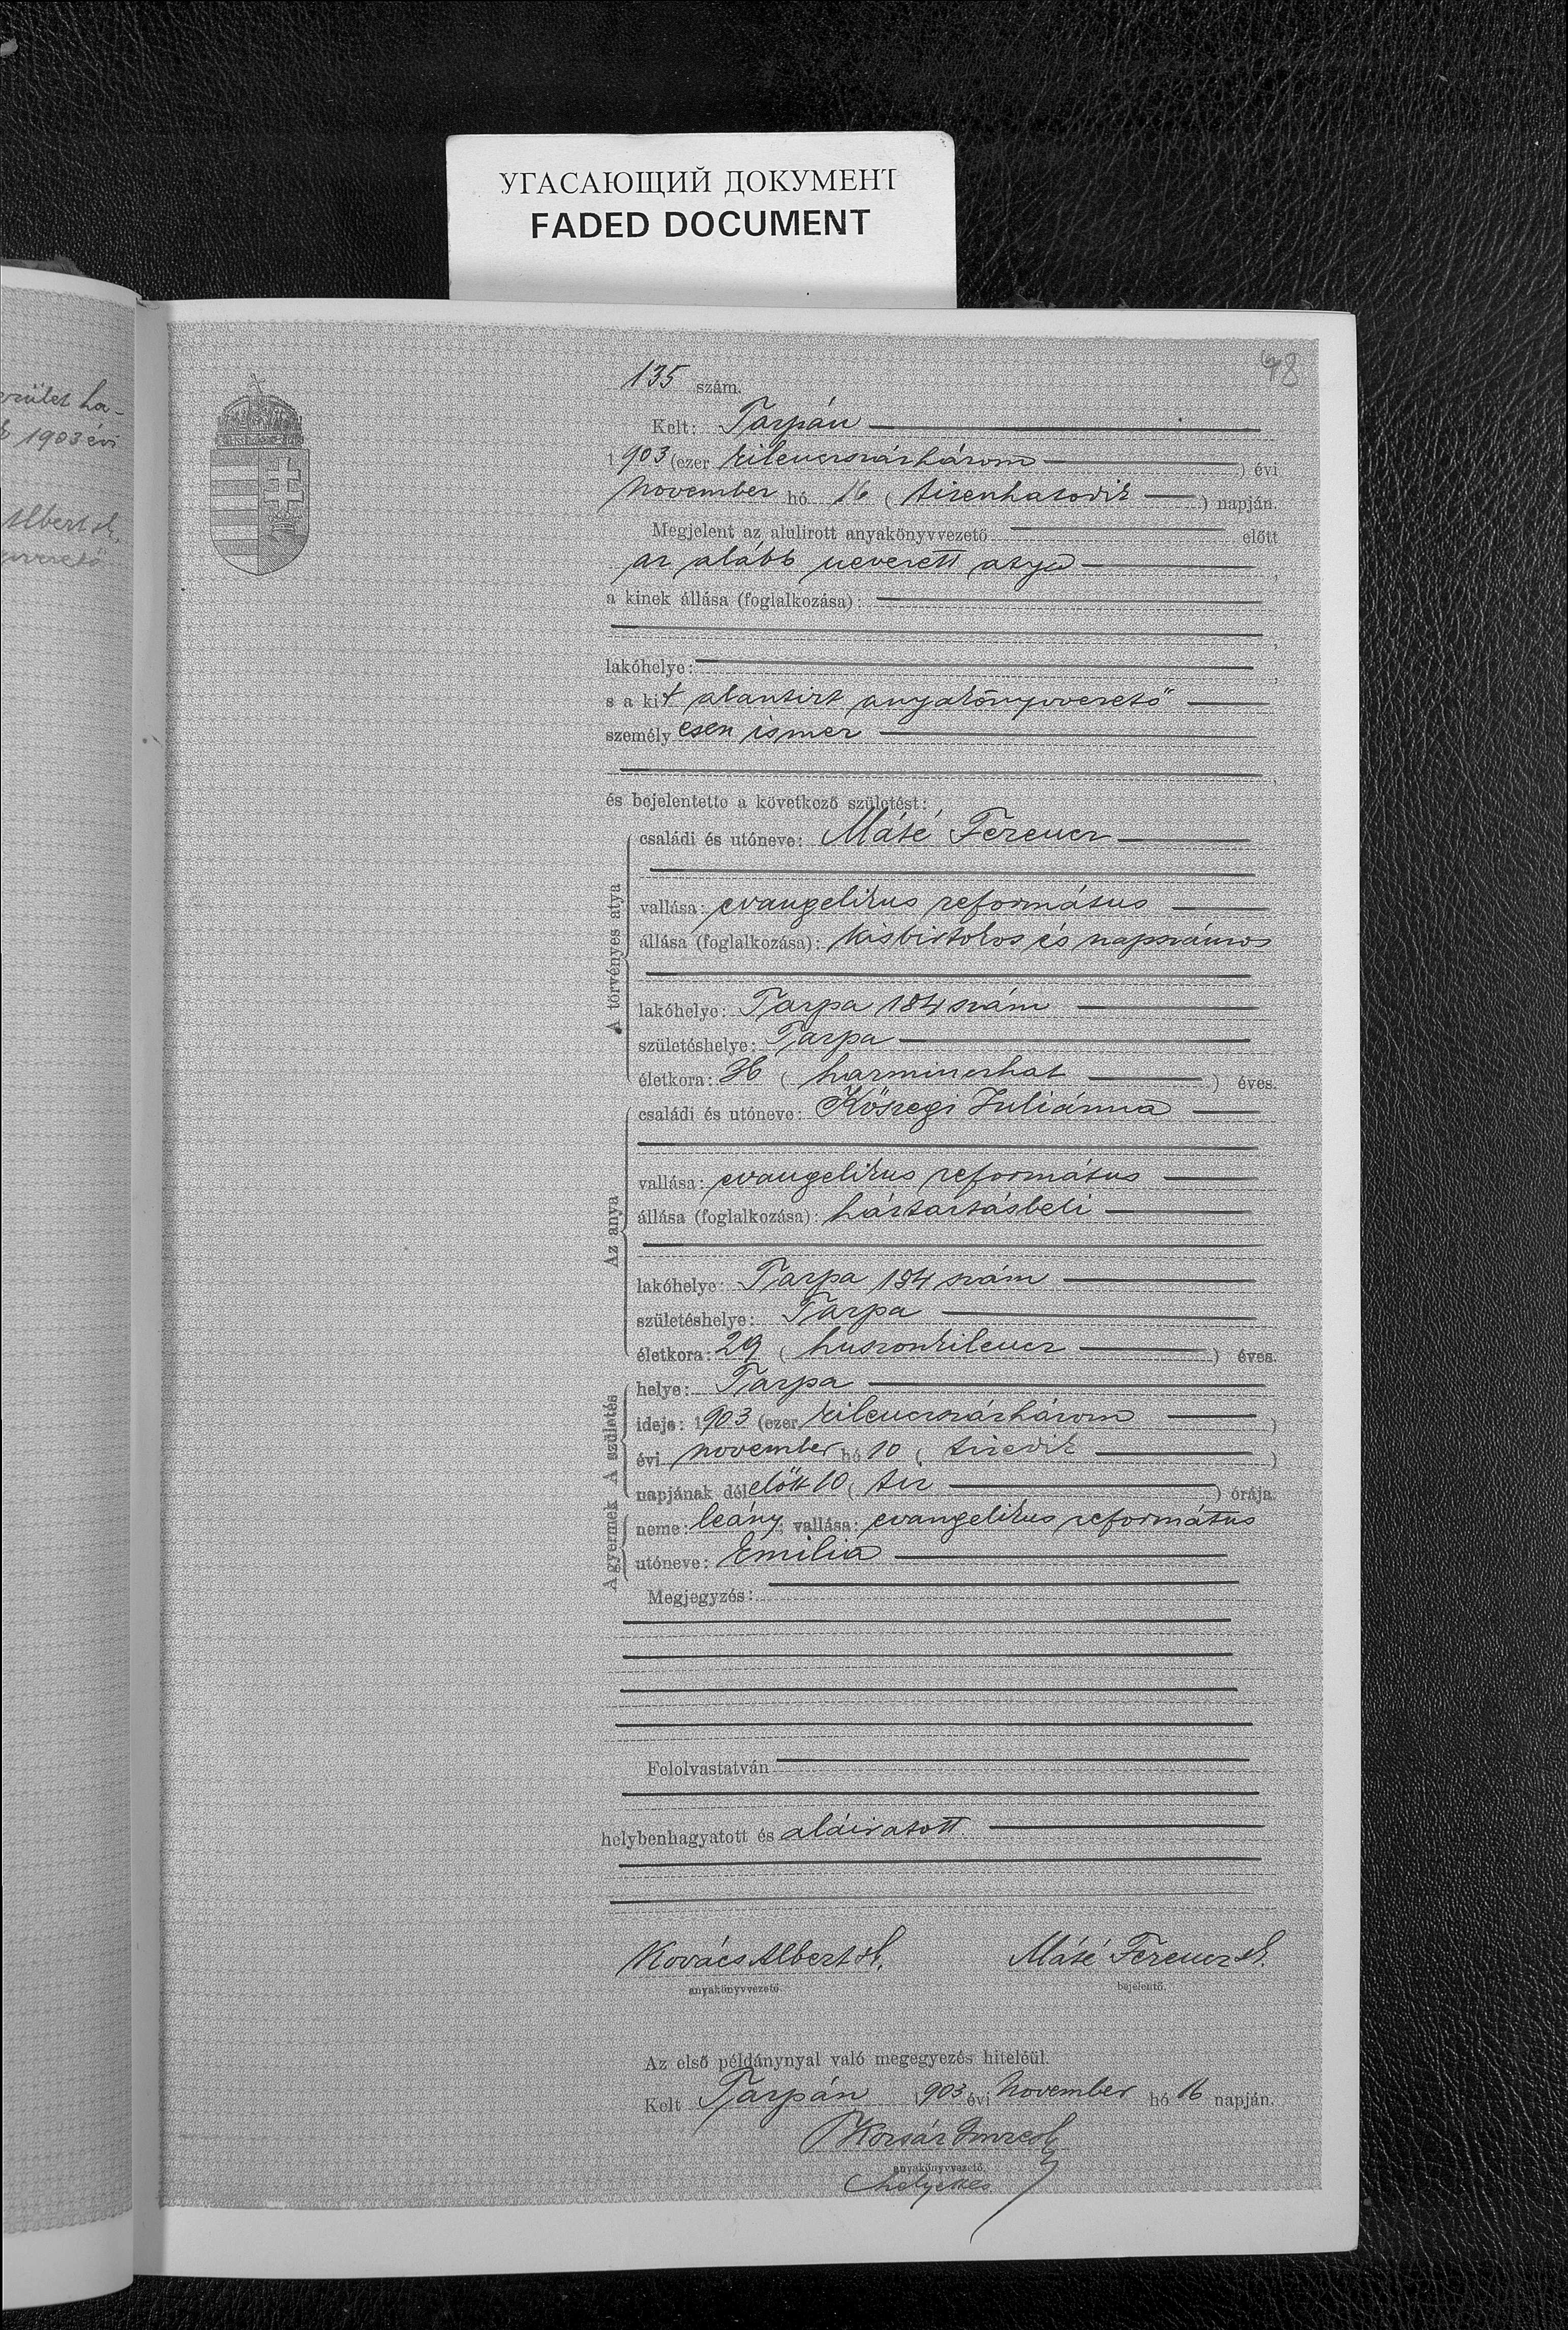 УГАСАЮЩИЙ ДОКУМЕНТ
FADED DOCUMENT
1903 évi
Albert sk.
135 szám.
Kelt: Tarpán
1903 (ezer kilenczszázhárom) évi
november hó 16 (tizenhatodik) napján.
Megjelent az alulirott anyakönyvvezető előtt
az alább nevezett atya,
a kinek állása (foglalkozása):
lakóhelye:
s a kit alantirt anyakönyvvezető
személyesen ismer
és bejelentette a következő születést:
A törvényes atya
családi és utóneve: Máté Ferencz
vallása: evangelikus református
állása (foglalkozása): kisbirtokos és napszámos
lakóhelye: Tarpa 184 szám
születéshelye: Tarpa
életkora: 36 (harminczhat) éves.
Az anya
családi és utóneve: Kőszegi Juliánna
vallása: evangelikus református
állása (foglalkozása): háztartásbeli
lakóhelye: Tarpa 184 szám
születéshelye: Tarpa
életkora: 29 (huszonkilencz) éves.
A születés
helye: Tarpa
ideje: 1903 (ezer kilenczszázhárom)
évi november hó 10 (tizedik)
napjának délelőtt 10 (tiz) órája.
A gyermek
neme: leány; vallása: evangelikus református
utóneve: Emilia
Megjegyzés:
Felolvastatván
helybenhagyatott és aláiratott
Kovács Albert sk. Máté Ferencz sk.
anyakönyvvezető. bejelentő.
Az első példánynyal való megegyezés hiteléül.
Kelt Tarpán 1903 évi november hó 16 napján.
anyakönyvvezető.
helyettes